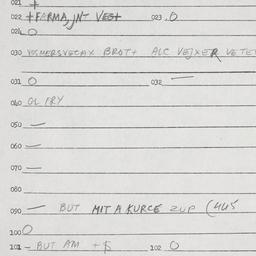 021 +
022 +FARMA, JNT VEST 023 . O
024 O
030 BROT+ ALC VEJXER VETE
031 O 032 —
040 OL FRY
050 —
060 —
070 —
080
090 — BUT MIT A KURCE ZUP (445
100 O
101 - BUT AM +$ 102 O